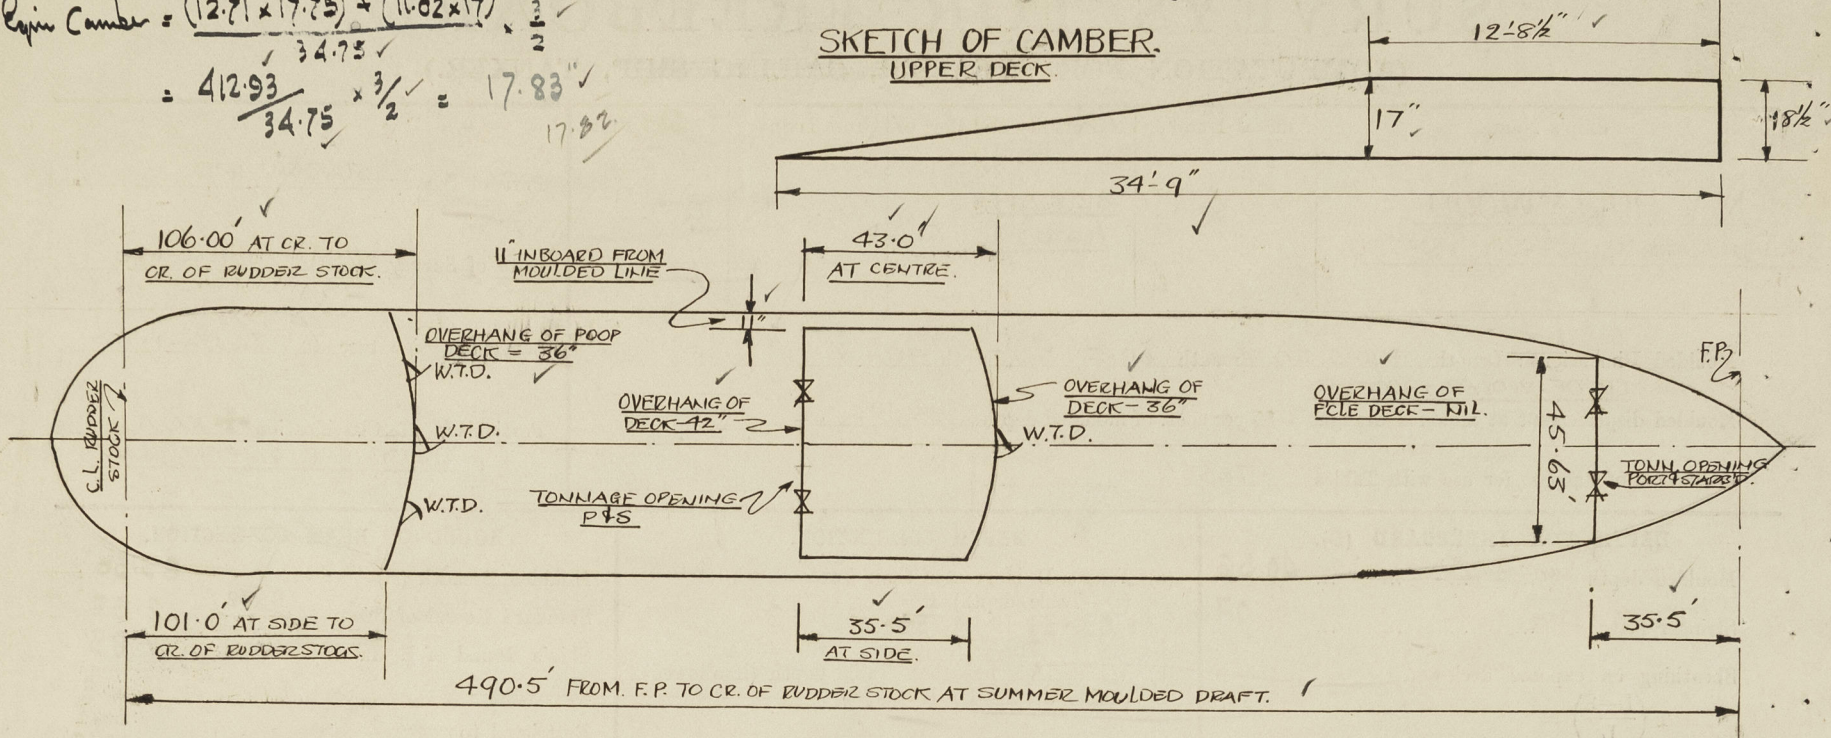 Eqiv Camber = (12.71 x 17.75) + (11.02 x 17) x 3/2
34.75
= 412.93/34.75 x 3/2 = 17.83"
17.82
SKETCH OF CAMBER.
UPPER DECK.
12'-8½"
17"
18½"
34'-9"
106.00' AT CR. TO
CR. OF RUDDER STOCK.
11" INBOARD FROM
MOULDED LINE
11"
43.0'
AT CENTRE.
OVERHANG OF POOP
DECK = 36"
W.T.D.
W.T.D.
W.T.D.
C.L. RUDDER
STOCK
OVERHANG OF
DECK-42"
TONNAGE OPENING
P&S
OVERHANG OF
DECK-36"
W.T.D.
OVERHANG OF
F'CLE DECK-NIL.
45.63'
F.P.
TONN. OPENING
PORT & STARB'D.
101.0' AT SIDE TO
CR. OF RUDDERSTOCK.
35.5'
AT SIDE.
35.5'
490.5' FROM. F.P. TO CR. OF RUDDER STOCK AT SUMMER MOULDED DRAFT.